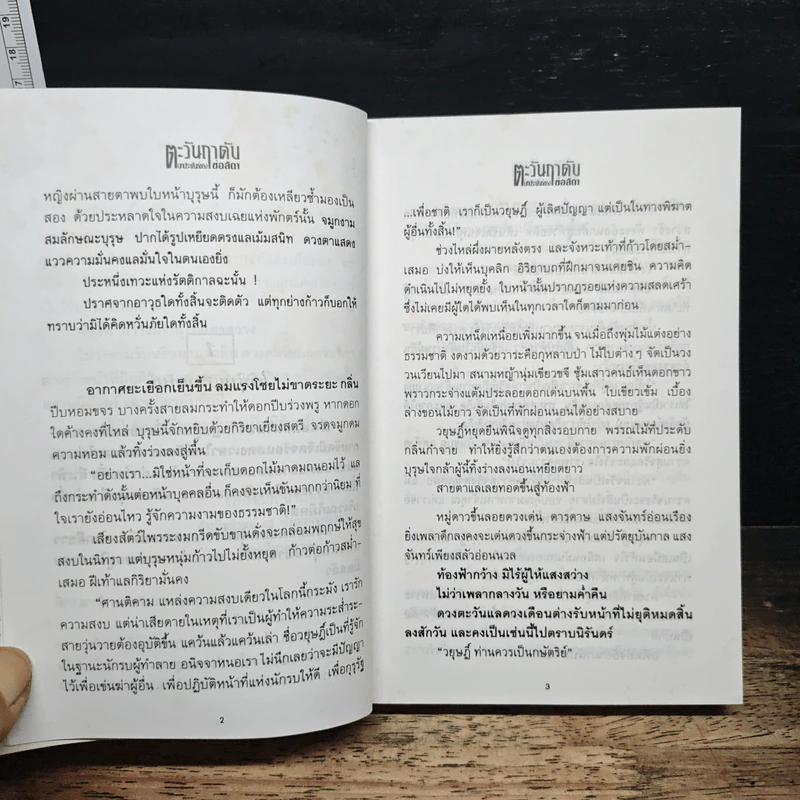 ตะวันฤาดับ
บทประพันธ์ของ โสภิตา
หญิงผ่านสายตาพบใบหน้าบุรุษนี้ ก็มักต้องเหลียวซ้ำมองเป็น
สอง ด้วยประหลาดใจในความสงบเฉยแห่งพักตร์นั้น จมูกงาม
สมลักษณะบุรุษ ปากได้รูปเหยียดตรงแลเม้มสนิท ดวงตาแสดง
แววความมั่นคงแลมั่นใจในตนเองยิ่ง
ประหนึ่งเทวะแห่งรัตติกาลฉะนั้น !
ปราศจากอาวุธใดทั้งสิ้นจะติดตัว แต่ทุกย่างก้าวก็บอกให้
ทราบว่ามิได้คิดหวั่นภัยใดทั้งสิ้น
อากาศยะเยือกเย็นขึ้น ลมแรงโชยไม่ขาดระยะ กลิ่น
ปีบหอมขจร บางครั้งสายลมกระทำให้ดอกปีบร่วงพรู หากดอก
ใดค้างคงที่ไหล่ บุรุษนี้จักหยิบด้วยกิริยาเยี่ยงสตรี จรดจมูกดม
ความหอม แล้วทิ้งร่วงลงสู่พื้น
“อย่างเรา...มิใช่หน้าที่จะเก็บดอกไม้มาดมถนอมไว้ แล
ถึงกระทำดังนั้นต่อหน้าบุคคลอื่น ก็คงจะเห็นขันมากกว่านิยม ที่
ใจเรายังอ่อนไหว รู้จักความงามของธรรมชาติ!”
เสียงสัตว์ไพรระงมกรีดขับขานดั่งจะกล่อมพฤกษ์ให้สุข
สงบในนิทรา แต่บุรุษหนุ่มก้าวไปไม่ยั้งหยุด ก้าวต่อก้าวสม่ำ-
เสมอ ฝีเท้าแลกิริยามั่นคง
“ศานติคาม แหล่งความสงบเดียวในโลกนี้กระมัง เรารัก
ความสงบ แต่น่าเสียดายในเหตุที่เราเป็นผู้ทำให้ความระส่ำระ-
สายวุ่นวายต้องอุบัติขึ้น แคว้นแล้วแคว้นเล่า ชื่อวยุษฏิ์เป็นที่รู้จัก
ในฐานะนักรบผู้ทำลาย อนิจจาหนอเรา ไม่นึกเลยว่าจะมีปัญญา
ไว้เพื่อเข่นฆ่าผู้อื่น เพื่อปฏิบัติหน้าที่แห่งนักรบให้ดี เพื่อกุรุรัฐ
2
ตะวันฤาดับ
บทประพันธ์ของ โสภิตา
...เพื่อชาติ เราก็เป็นวยุษฏิ์ ผู้เลิศปัญญา แต่เป็นในทางพิฆาต
ผู้อื่นทั้งสิ้น!”
ช่วงไหล่ผึ่งผายหลังตรง และจังหวะเท้าที่ก้าวโดยสม่ำ-
เสมอ บ่งให้เห็นบุคลิก อิริยาบถที่ฝึกมาจนเคยชิน ความคิด
ดำเนินไปไม่หยุดยั้ง ใบหน้านั้นปรากฏรอยแห่งความสลดเศร้า
ซึ่งไม่เคยมีผู้ใดได้พบเห็นในทุกเวลาใดก็ตามมาก่อน
ความเหน็ดเหนื่อยเพิ่มมากขึ้น จนเมื่อถึงพุ่มไม้แต่งอย่าง
ธรรมชาติ งดงามด้วยวาระคือกุหลาบป่า ไม้ใบต่างๆ จัดเป็นวง
วนเวียนไปมา สนามหญ้านุ่มเขียวขจี ซุ้มเสาวคนธ์เห็นดอกขาว
พราวกระจ่างแต้มประลอยดอกเด่นบนพื้น ใบเขียวเข้ม เบื้อง
ล่างขอนไม้ยาว จัดเป็นที่พักผ่อนนอนได้อย่างสบาย
วยุษฏิ์หยุดยืนพินิจดูทุกสิ่งรอบกาย พรรณไม้ที่ประดับ
กลิ่นกำจาย ทำให้ยิ่งรู้สึกว่าตนเองต้องการความพักผ่อนยิ่ง
บุรุษใจกล้าผู้นี้ทิ้งร่างลงนอนเหยียดยาว
สายตาแลเลยทอดขึ้นสู่ท้องฟ้า
หมู่ดาวขึ้นลอยดวงเด่น ดารดาษ แสงจันทร์อ่อนเรือง
ยิ่งเพลาดึกลงคงจะเด่นดวงขึ้นกระจ่างฟ้า แต่ปวัตยุบันกาล แสง
จันทร์เพียงสลัวอ่อนนวล
ท้องฟ้ากว้าง มิไร้ผู้ให้แสงสว่าง
ไม่ว่าเพลากลางวัน หรือยามค่ำคืน
ดวงตะวันแลดวงเดือนต่างรับหน้าที่ไม่ยุติหมดสิ้น
ลงสักวัน และคงเป็นเช่นนี้ไปตราบนิรันดร์
“วยุษฏิ์ ท่านควรเป็นกษัตริย์”
3
17
18
19